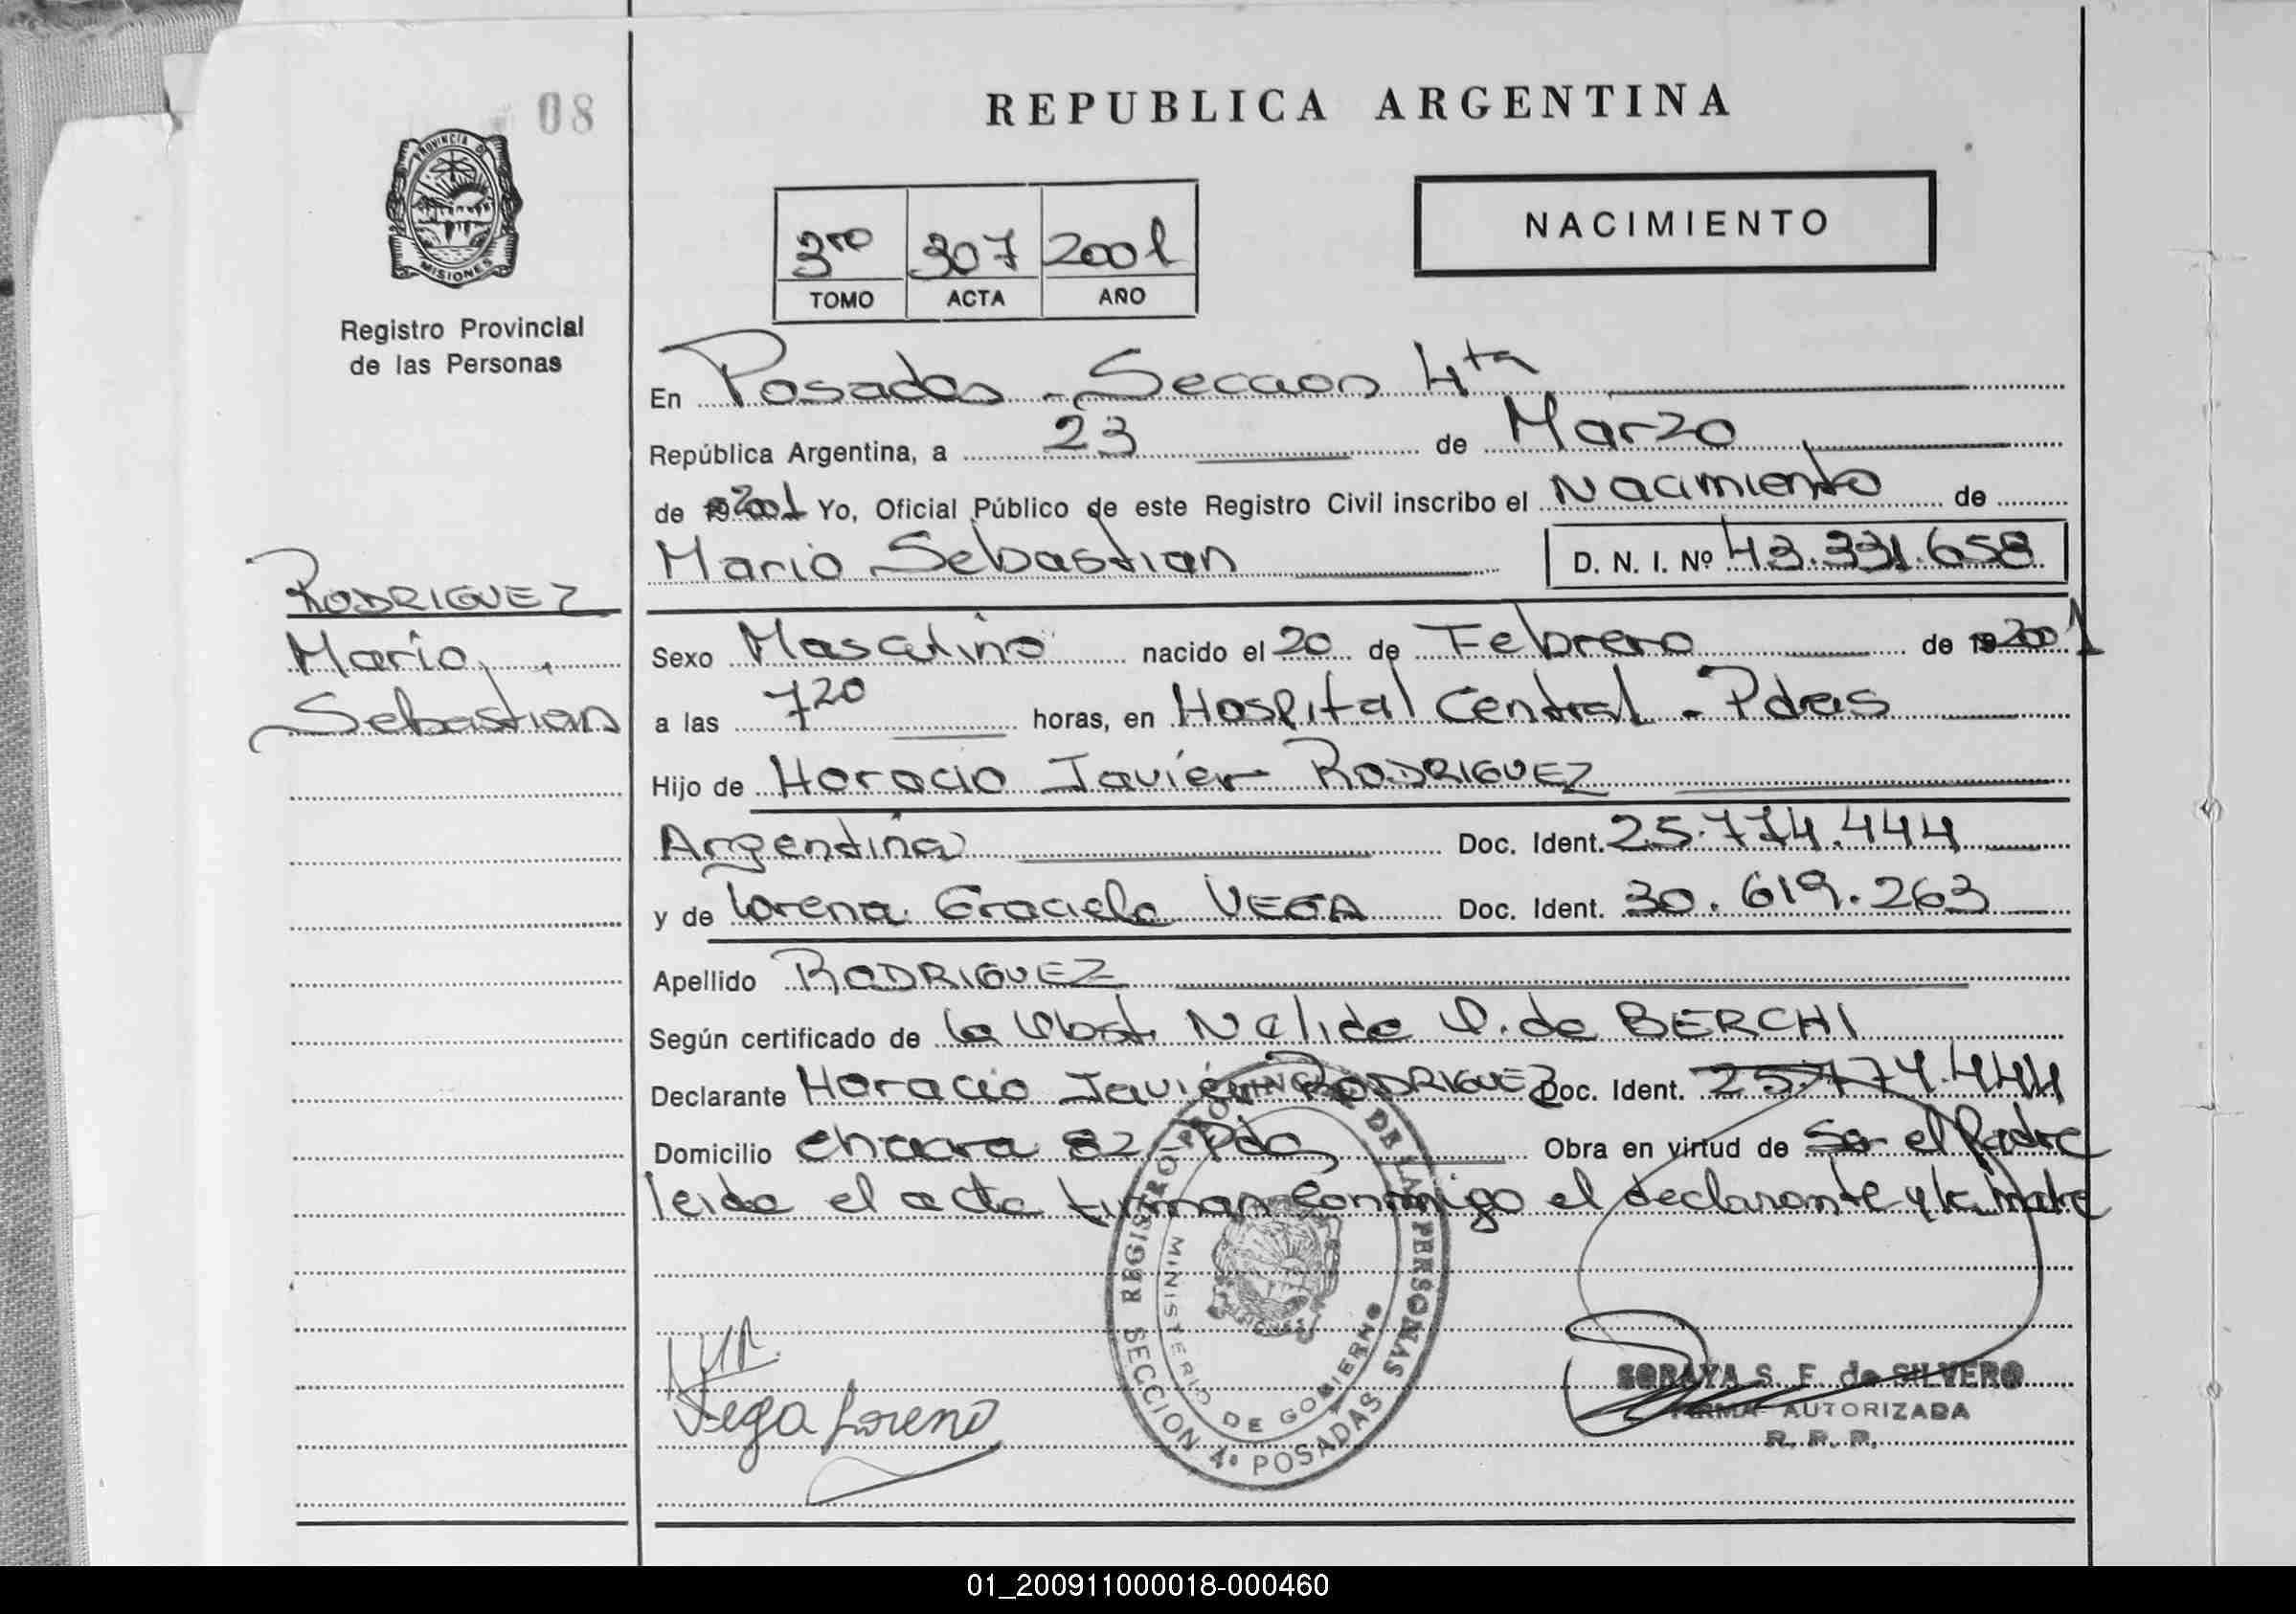 08
REPUBLICA ARGENTINA
PROVINCIA DE
MISIONES
Registro Provincial
de las Personas
NACIMIENTO
3ro 307 2001
TOMO ACTA AÑO
En Posadas - Seccion 4ta
República Argentina, a 23 de Marzo
de 2001 Yo, Oficial Público de este Registro Civil inscribo el Nacimiento de
Mario Sebastian D. N. I. Nº 43.331.658
RODRIGUEZ
Mario
Sebastian
Sexo Masculino nacido el 20 de Febrero de 2001
a las 7 20 horas, en Hospital Central - Pdas
Hijo de Horacio Javier RODRIGUEZ
Argentina Doc. Ident. 25.774.444
y de Lorena Graciela VEGA Doc. Ident. 30.619.263
Apellido RODRIGUEZ
Según certificado de la Obst. Nelida de BERCHI
Declarante Horacio Javier RODRIGUEZ Doc. Ident. 25.774.444
Domicilio Chacra 82 - Pdas Obra en virtud de Ser el Padre
leida el acta firman conmigo el declarante y la madre
REGISTRO PROVINCIAL DE LAS PERSONAS
MINISTERIO DE GOBIERNO
SECCION 4ª POSADAS
Vega Lorena
SORAYA S. F. de SILVERO
FIRMA AUTORIZADA
R. P. P.
01_200911000018-000460